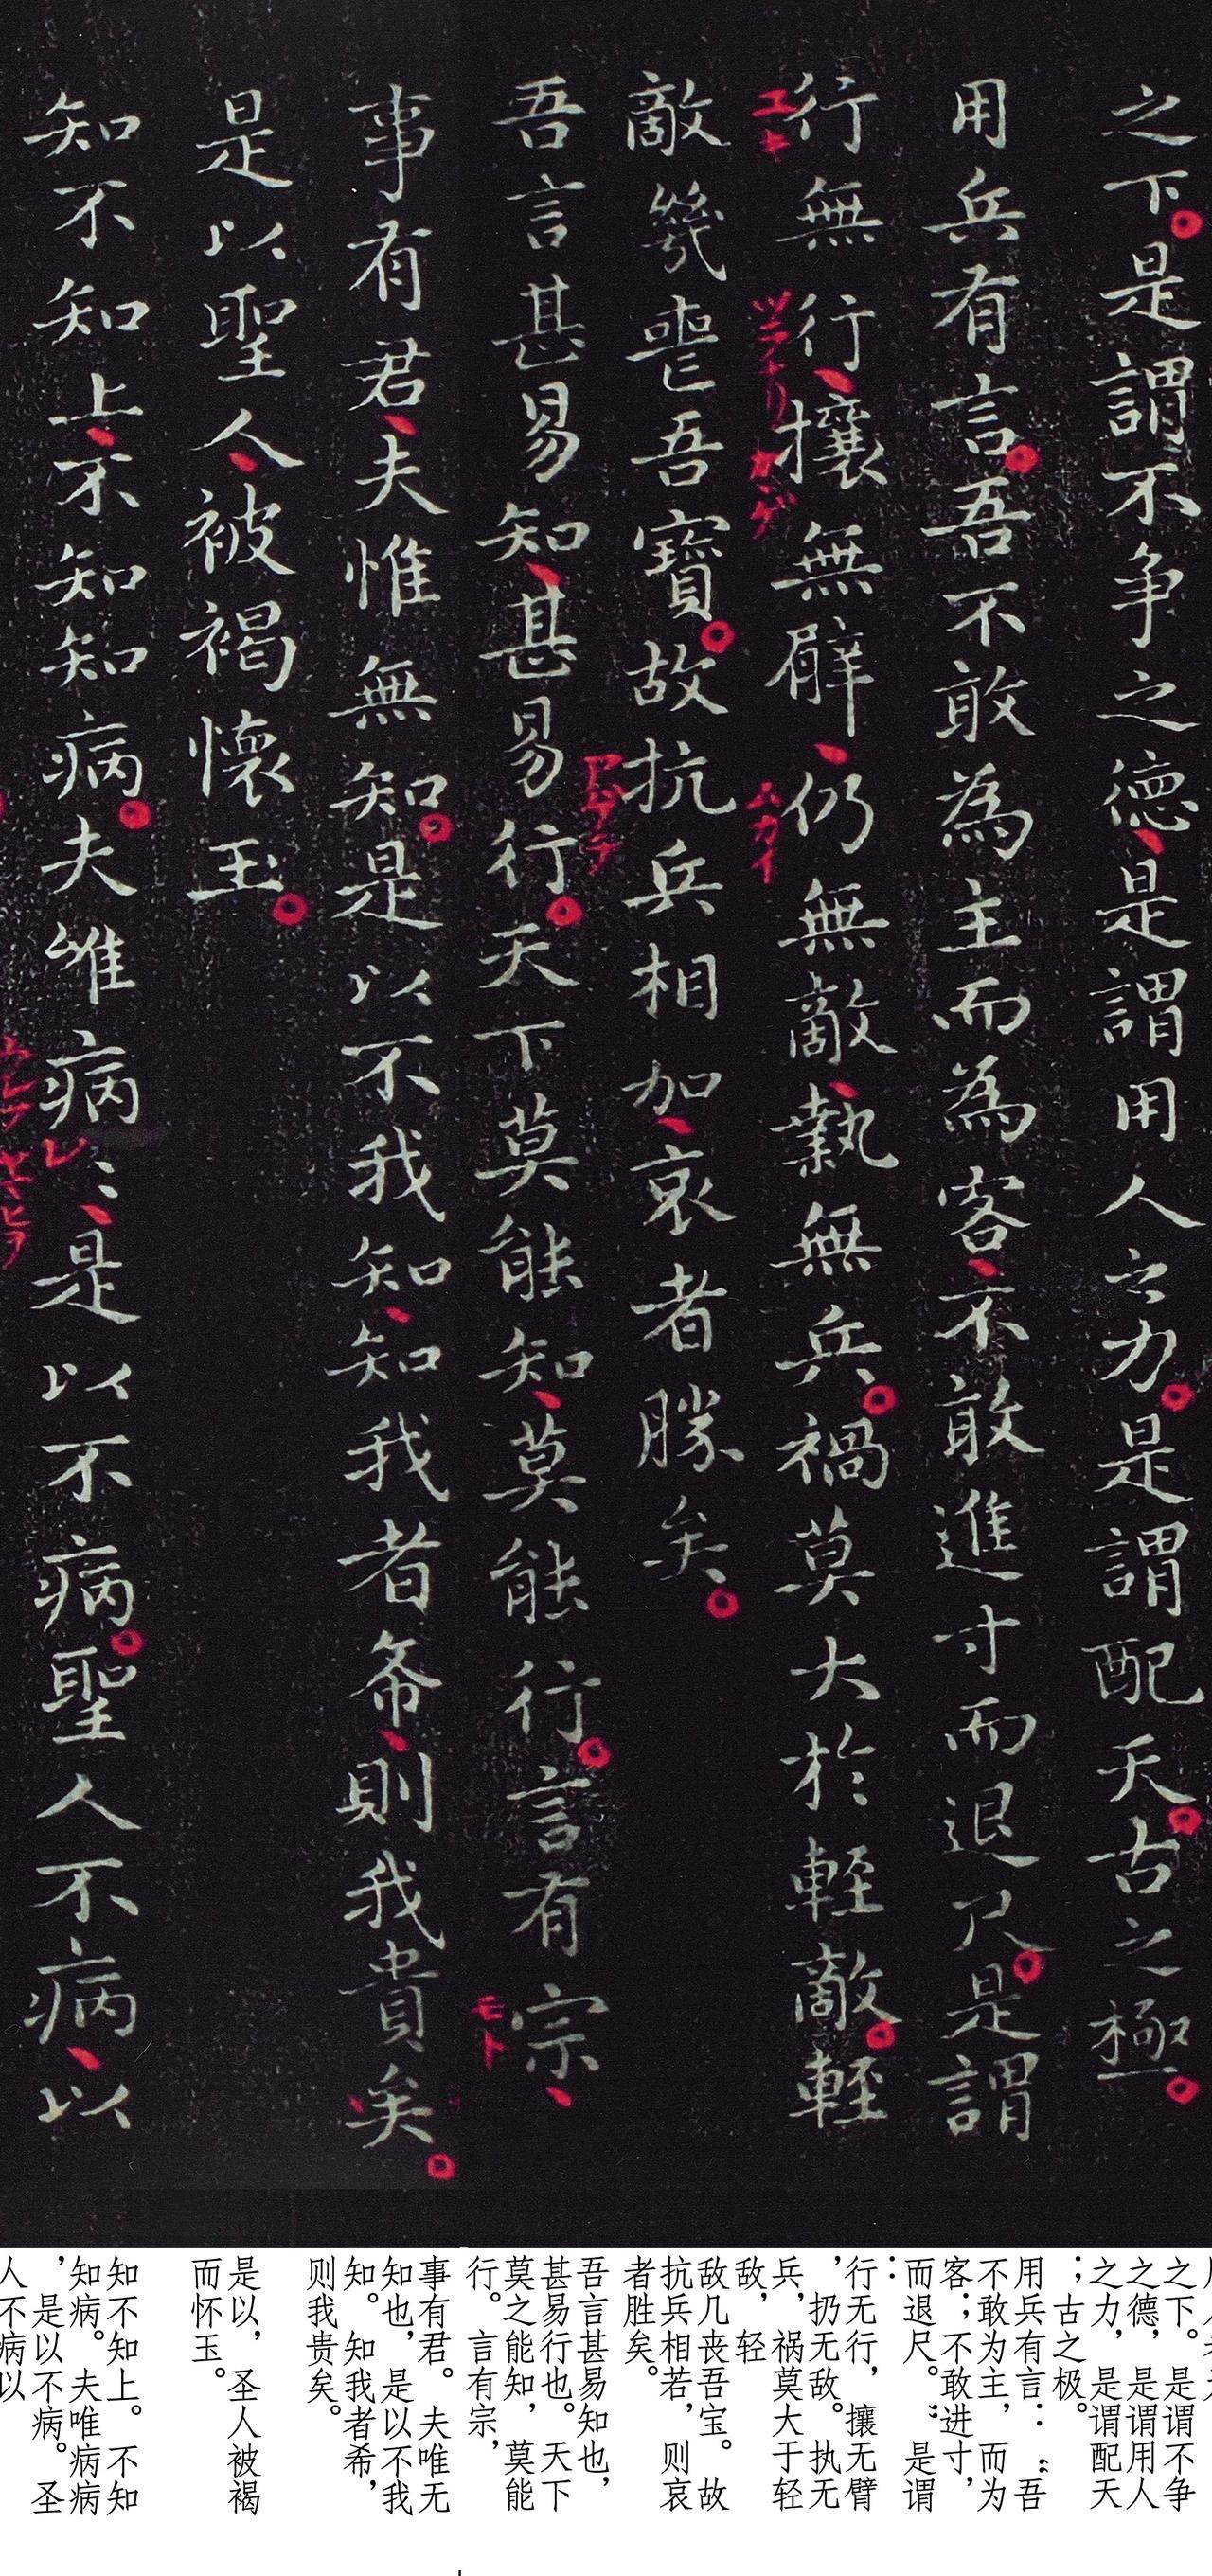 之下是謂不争之德是謂用人之力是謂配天古之極
用兵有言吾不敢為主而為客不敢進寸而退尺是謂
行無行攘無臂仍無敵執無兵禍莫大於輕敵輕
エキ
ムカイ
敵幾喪吾寶故抗兵相加哀者勝矣
吾言甚易知甚易行天下莫能知莫能行言有宗
モト
事有君夫惟無知是以不我知知我者希則我貴矣
是以聖人被褐懷玉
知不知上不知知病夫唯病〻是以不病聖人不病以
之下。是谓不争
之德，是谓用人
之力，是谓配天
；古之极。
用兵有言：“吾
不敢为主，而为
客；不敢进寸，
而退尺。”是谓
：
行无行，攘无臂
，扔无敌。执无
兵，祸莫大于轻
敌，轻
敌几丧吾宝。故
抗兵相若，则哀
者胜矣。
吾言甚易知也，
甚易行也。天下
莫之能知，莫能
行。言有宗，
事有君。夫唯无
知也，是以不我
知。知我者希，
则我贵矣。
是以，圣人被褐
而怀玉。
知不知上。不知
知病。夫唯病病
，是以不病。圣
人不病以